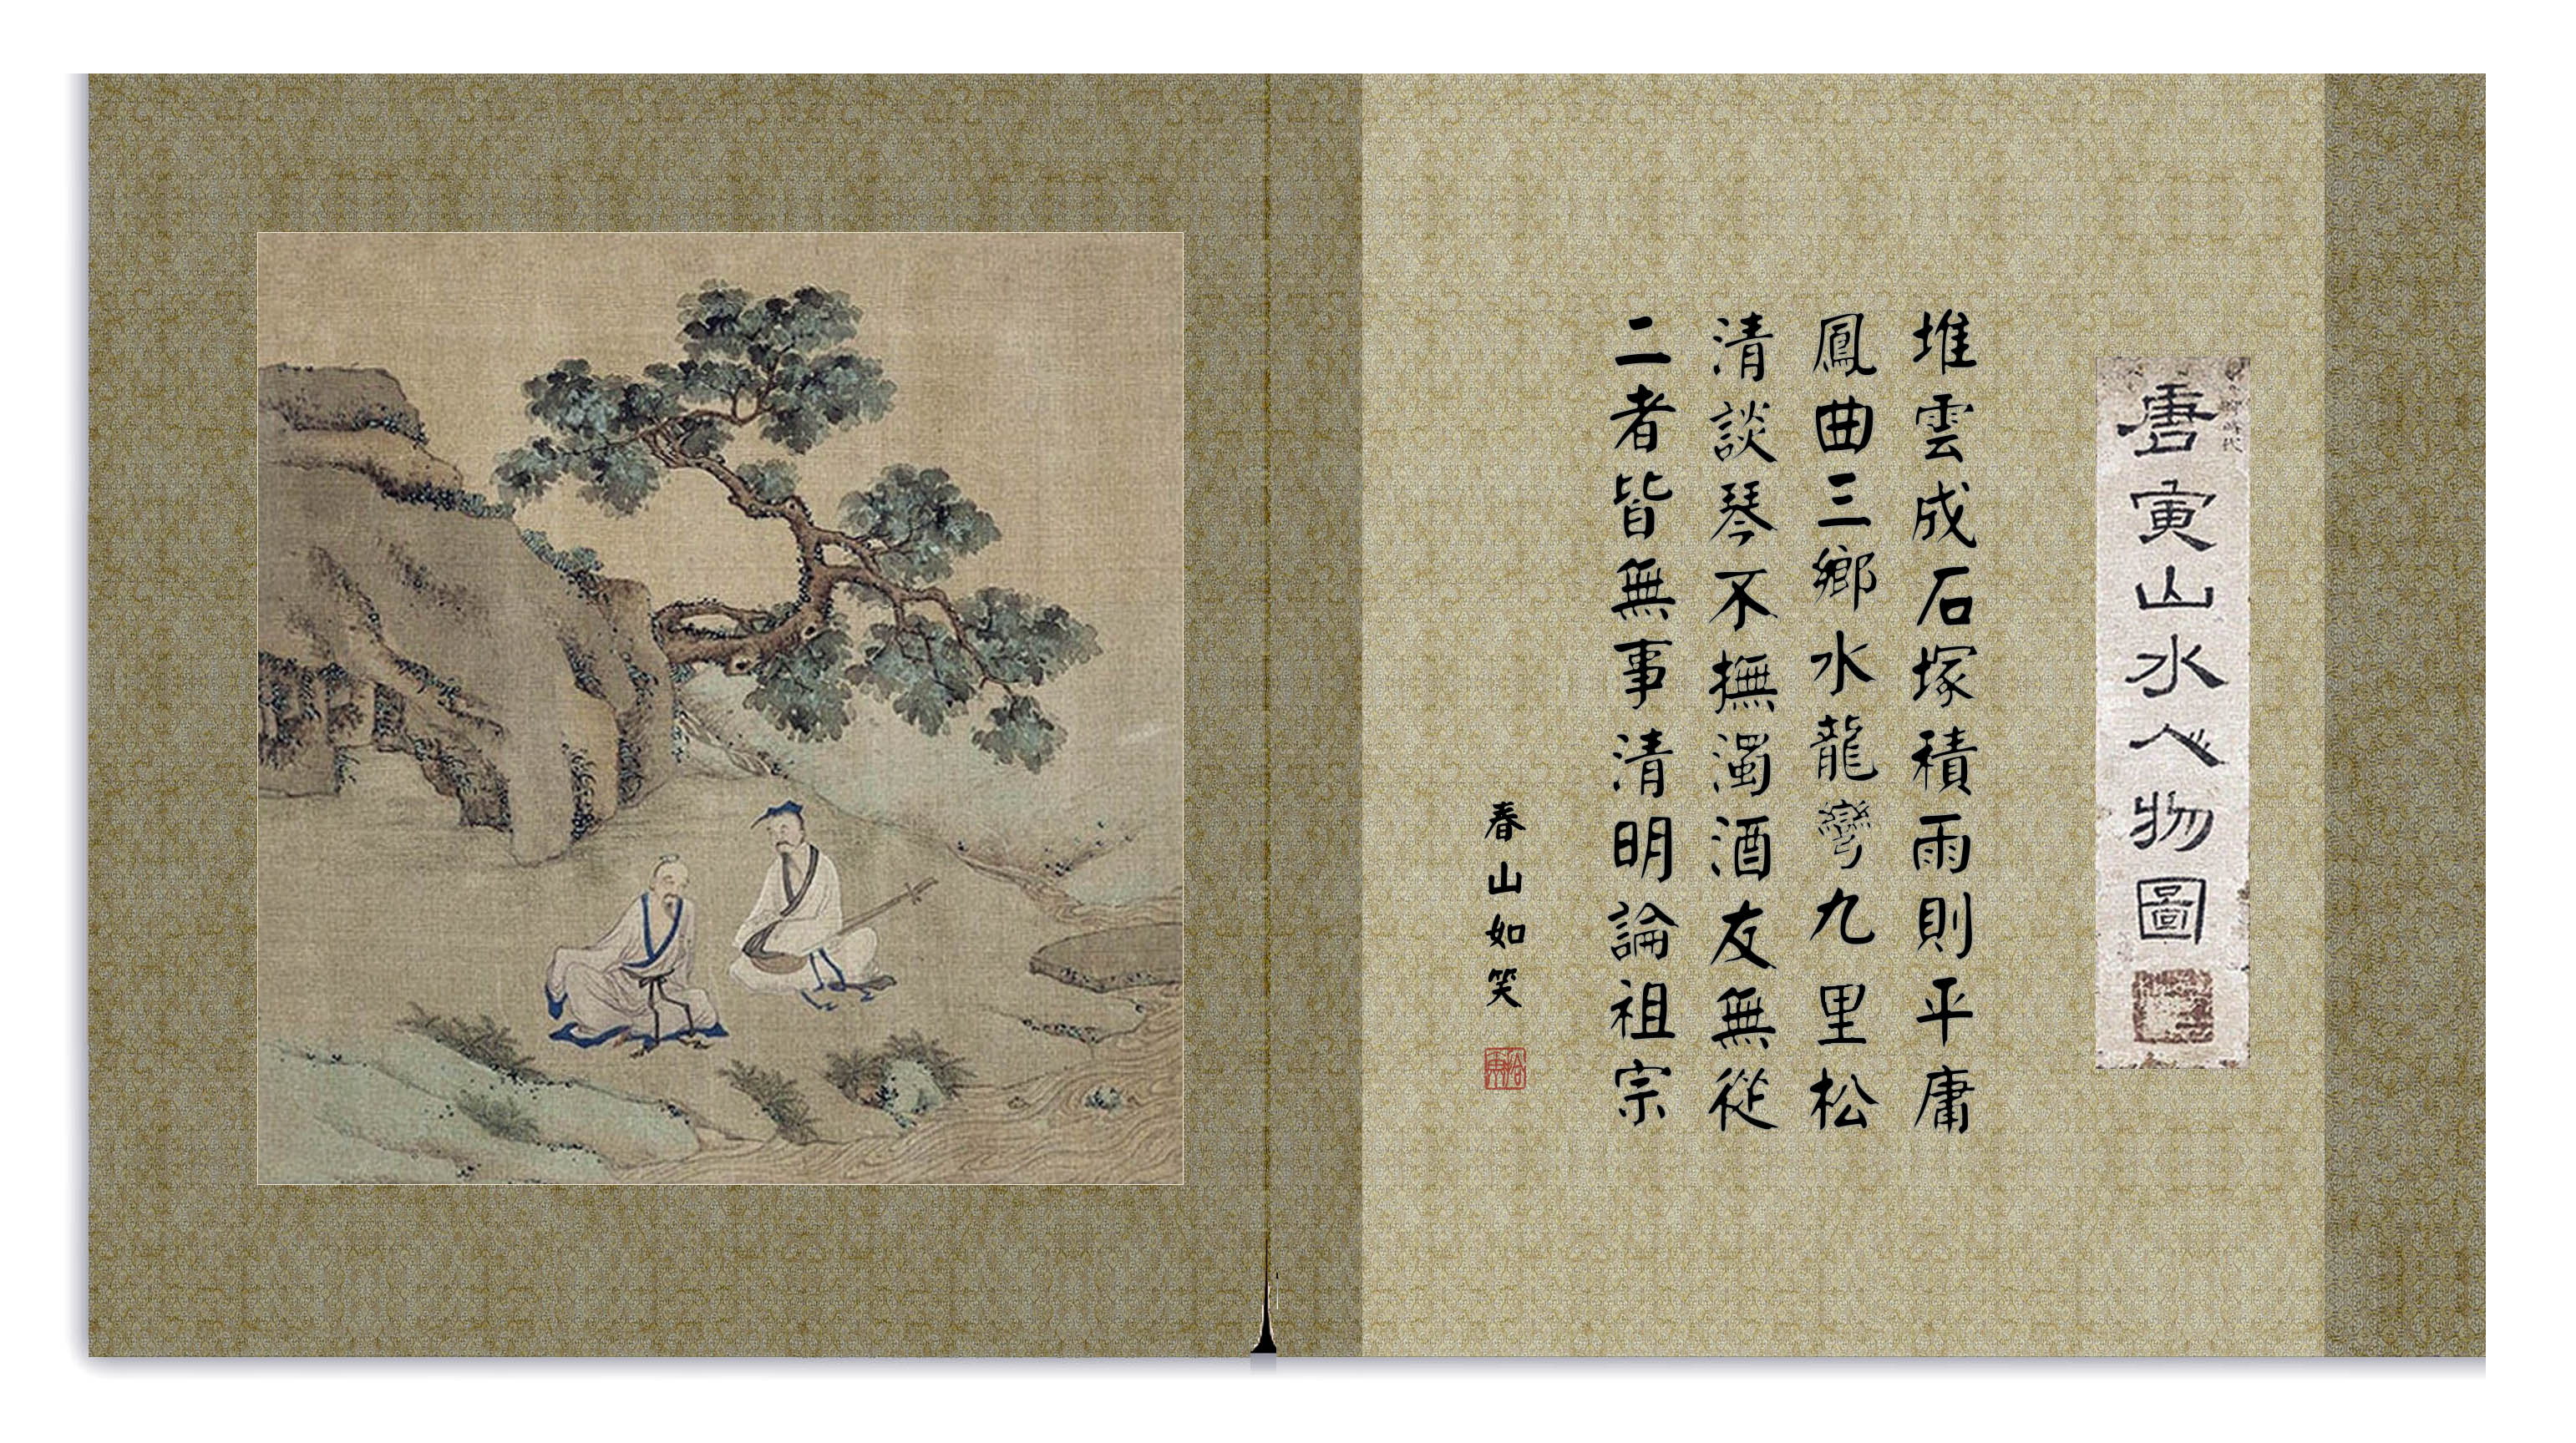 唐寅山水人物圖
堆雲成石塚積雨則平庸
鳳曲三鄉水龍彎九里松
清談琴不撫濁酒友無從
二者皆無事清明論祖宗
春山如笑